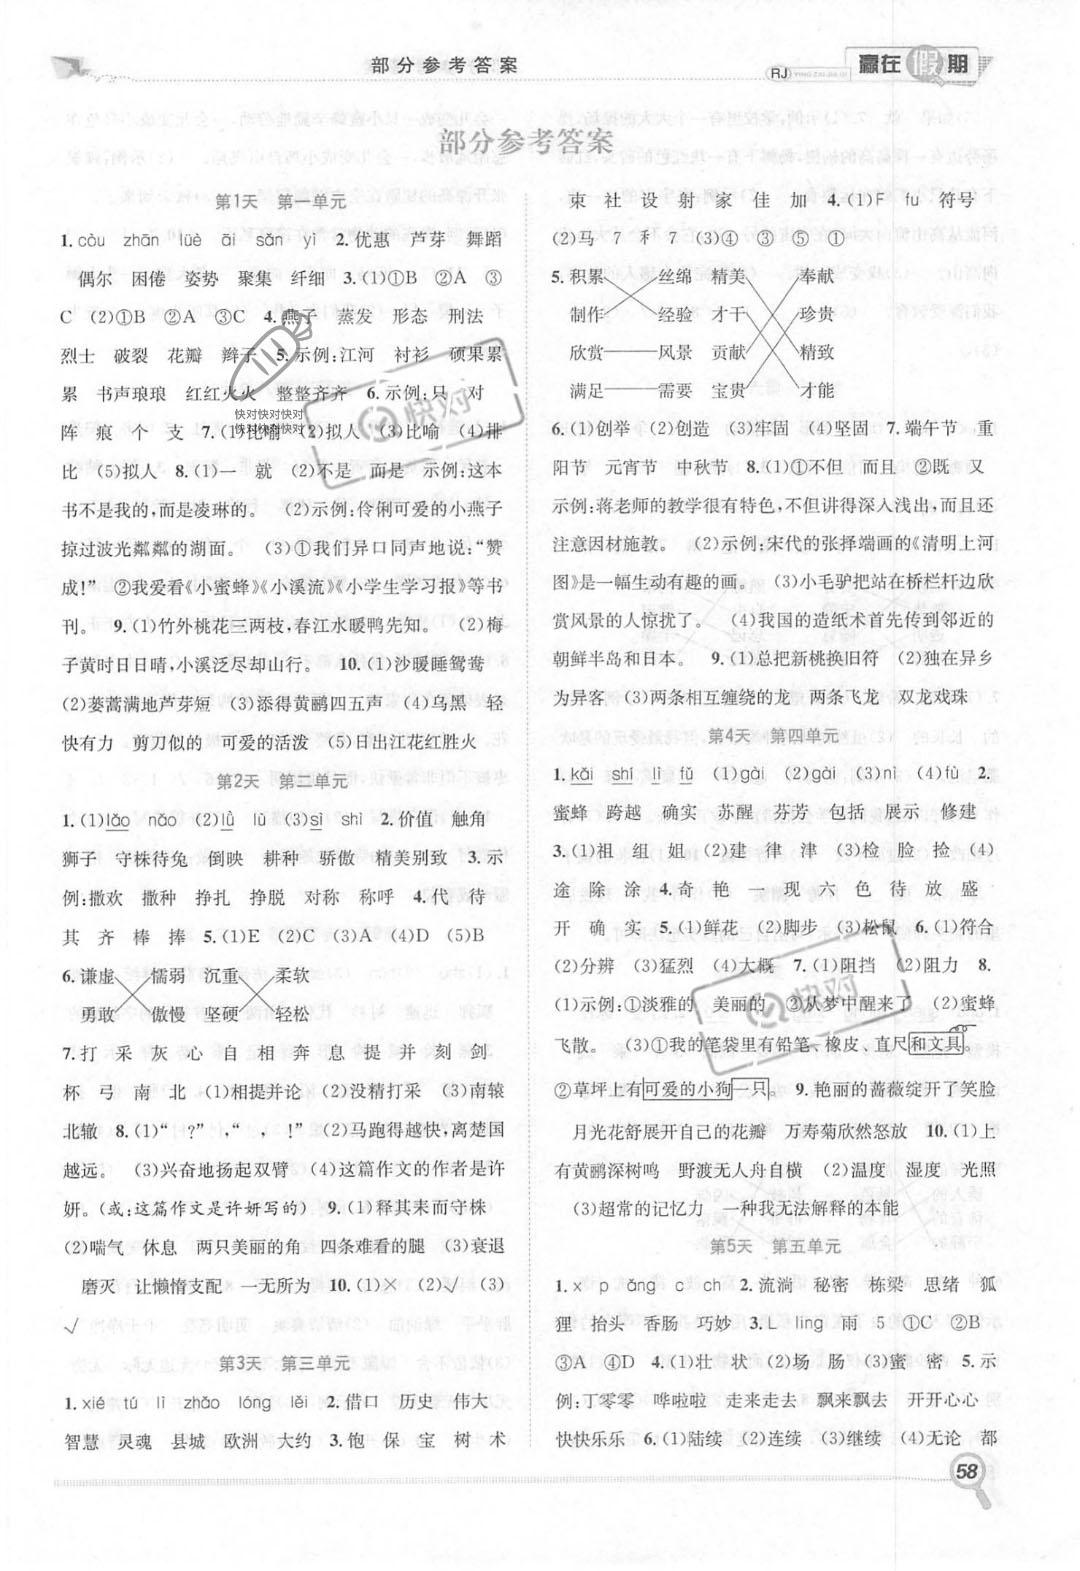 部分参考答案
RJ
YING ZAI JIA QI
赢在假期
部分参考答案
第1天 第一单元
1. còu zhān lüè āi sǎn yì 2.优惠 芦芽 舞蹈
偶尔 困倦 姿势 聚集 纤细 3.(1)①B ②A ③
C (2)①B ②A ③C 4.燕子 蒸发 形态 刑法
烈士 破裂 花瓣 辫子 5.示例:江河 衬衫 硕果累
累 书声琅琅 红红火火 整整齐齐 6.示例:只 对
阵 痕 个 支 7.(1)比喻 (2)拟人 (3)比喻 (4)排
比 (5)拟人 8.(1)一 就 (2)不是 而是 示例:这本
书不是我的,而是凌琳的。 (2)示例:伶俐可爱的小燕子
掠过波光粼粼的湖面。 (3)①我们异口同声地说:“赞
成!” ②我爱看《小蜜蜂》《小溪流》《小学生学习报》等书
刊。 9.(1)竹外桃花三两枝,春江水暖鸭先知。 (2)梅
子黄时日日晴,小溪泛尽却山行。 10.(1)沙暖睡鸳鸯
(2)蒌蒿满地芦芽短 (3)添得黄鹂四五声 (4)乌黑 轻
快有力 剪刀似的 可爱的活泼 (5)日出江花红胜火
第2天 第二单元
1.(1)lǎo nǎo (2)lǜ lù (3)sì shì 2.价值 触角
狮子 守株待兔 倒映 耕种 骄傲 精美别致 3.示
例:撒欢 撒种 挣扎 挣脱 对称 称呼 4.代 待
其 齐 棒 捧 5.(1)E (2)C (3)A (4)D (5)B
6.谦虚 懦弱 沉重 柔软
勇敢 傲慢 坚硬 轻松
7.打 采 灰 心 自 相 奔 息 提 并 刻 剑
杯 弓 南 北 (1)相提并论 (2)没精打采 (3)南辕
北辙 8.(1)“ ?”,“ , !” (2)马跑得越快,离楚国
越远。 (3)兴奋地扬起双臂 (4)这篇作文的作者是许
妍。(或:这篇作文是许妍写的) 9.(1)释其耒而守株
(2)喘气 休息 两只美丽的角 四条难看的腿 (3)衰退
磨灭 让懒惰支配 一无所为 10.(1)× (2)√ (3)
√
第3天 第三单元
1. xié tú lì zhāo lóng lěi 2.借口 历史 伟大
智慧 灵魂 县城 欧洲 大约 3.饱 保 宝 树 术
束 社 设 射 家 佳 加 4.(1)F fu 符号
(2)马 7 禾 7 (3)④ ③ ⑤ ①
5.积累 丝绵 精美 奉献
制作 经验 才干 珍贵
欣赏 风景 贡献 精致
满足 需要 宝贵 才能
6.(1)创举 (2)创造 (3)牢固 (4)坚固 7.端午节 重
阳节 元宵节 中秋节 8.(1)①不但 而且 ②既 又
示例:蒋老师的教学很有特色,不但讲得深入浅出,而且还
注意因材施教。 (2)示例:宋代的张择端画的《清明上河
图》是一幅生动有趣的画。 (3)小毛驴把站在桥栏杆边欣
赏风景的人惊扰了。 (4)我国的造纸术首先传到邻近的
朝鲜半岛和日本。 9.(1)总把新桃换旧符 (2)独在异乡
为异客 (3)两条相互缠绕的龙 两条飞龙 双龙戏珠
第4天 第四单元
1. kāi shí lì fǔ (1)gài (2)gài (3)nì (4)fù 2.
蜜蜂 跨越 确实 苏醒 芬芳 包括 展示 修建
3.(1)祖 组 姐 (2)建 律 津 (3)检 脸 捡 (4)
途 除 涂 4.奇 艳 一 现 六 色 待 放 盛
开 确 实 5.(1)鲜花 (2)脚步 (3)松鼠 6.(1)符合
(2)分辨 (3)猛烈 (4)大概 7.(1)阻挡 (2)阻力 8.
(1)示例:①淡雅的 美丽的 ②从梦中醒来了 (2)蜜蜂
飞散。 (3)①我的笔袋里有铅笔、橡皮、直尺和文具。
②草坪上有可爱的小狗一只。 9.艳丽的蔷薇绽开了笑脸
月光花舒展开自己的花瓣 万寿菊欣然怒放 10.(1)上
有黄鹂深树鸣 野渡无人舟自横 (2)温度 湿度 光照
(3)超常的记忆力 一种我无法解释的本能
第5天 第五单元
1. x p ǎng c ch 2.流淌 秘密 栋梁 思绪 狐
狸 抬头 香肠 巧妙 3.L ling 雨 5 ①C ②B
③A ④D 4.(1)壮 状 (2)场 肠 (3)蜜 密 5.示
例:丁零零 哗啦啦 走来走去 飘来飘去 开开心心
快快乐乐 6.(1)陆续 (2)连续 (3)继续 (4)无论 都
58
快对快对快对
快对快对快对
快对
快对